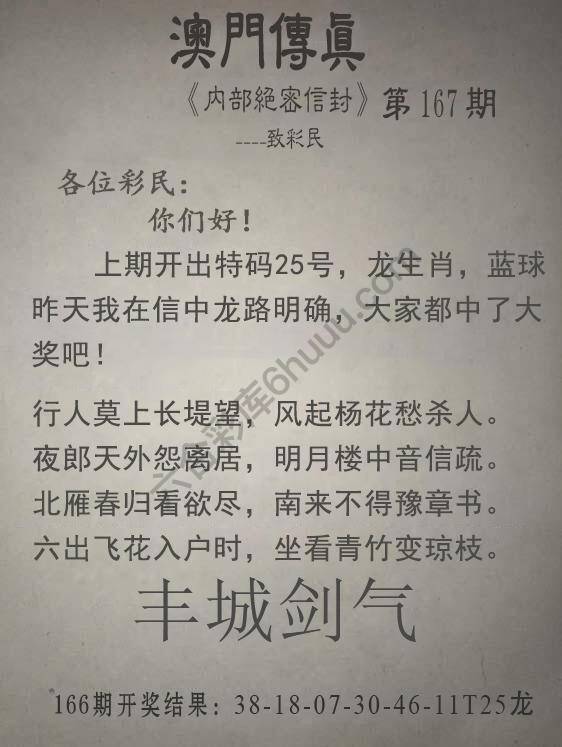 澳門傳眞
《内部絕密信封》第167期
----致彩民
各位彩民:
你们好!
上期开出特码25号，龙生肖，蓝球
昨天我在信中龙路明确，大家都中了大
奖吧!
行人莫上长堤望，风起杨花愁杀人。
夜郎天外怨离居，明月楼中音信疏。
北雁春归看欲尽，南来不得豫章书。
六出飞花入户时，坐看青竹变琼枝。
丰城剑气
166期开奖结果: 38-18-07-30-46-11T25龙
六合彩库6huuu.com